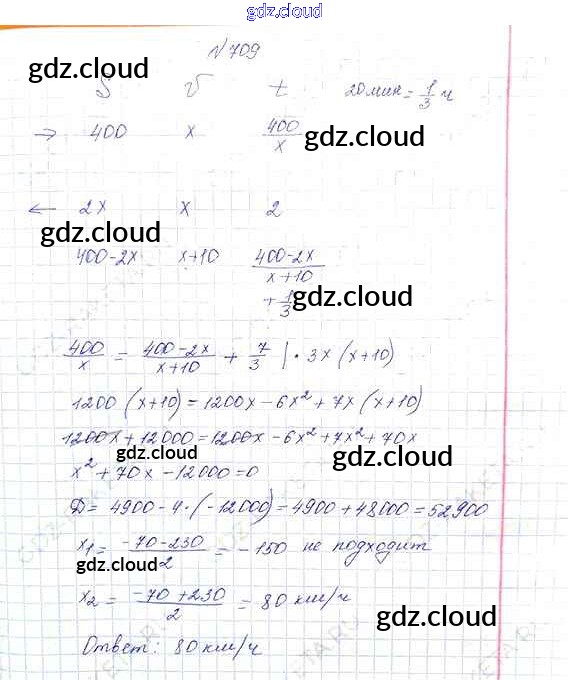 gdz.cloud
№ 709
gdz.cloud
S v t 20 мин = 1/3 ч
→ 400 x 400/x
gdz.cloud
← 2x x 2
gdz.cloud
400-2x x+10 (400-2x)/(x+10)
+ 1/3
gdz.cloud
400/x = (400-2x)/(x+10) + 7/3 | · 3x (x+10)
1200 (x+10) = 1200x - 6x² + 7x (x+10)
1200x + 12000 = 1200x - 6x² + 7x² + 70x
gdz.cloud
gdz.cloud
x² + 70x - 12000 = 0
D = 4900 - 4 · (-12000) = 4900 + 48000 = 52900
gdz.cloud
x₁ = (-70-230)/2 = -150 не подходит
gdz.cloud
x₂ = (-70+230)/2 = 80 км/ч
gdz.cloud
gdz.cloud
Ответ: 80 км/ч